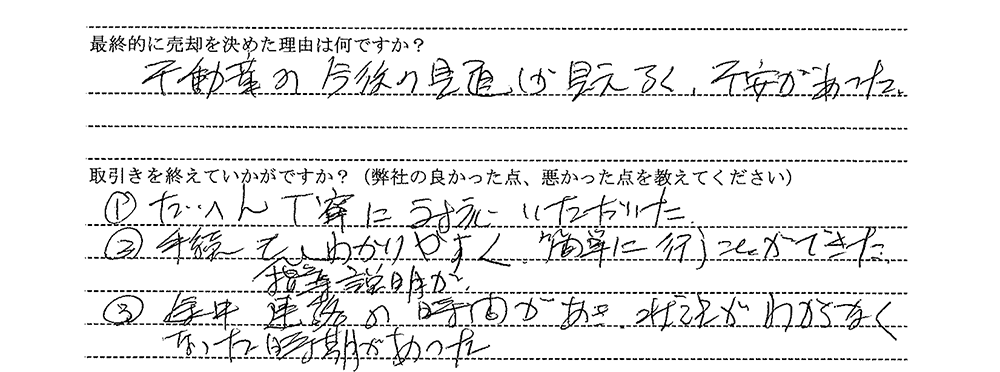 最終的に売却を決めた理由は何ですか？
不動産の今後の見通しが見えなく、不安があった。
取引きを終えていかがですか？（弊社の良かった点、悪かった点を教えてください）
① たいへん丁寧に対応いただいた。
② 手続もわかりやすく、簡単に行うことができた。
指導説明が、
③ 途中連絡の時間があき、状況がわからなく
なった時期があった